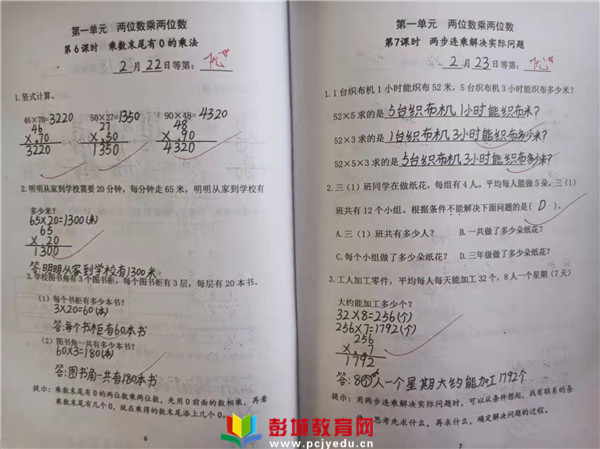 第一单元 两位数乘两位数
第6课时 乘数末尾有0的乘法
2月22日等第:优
1.竖式计算。
46×70=3220 50×27=1350 90×48=4320
46 27 48
×70 ×50 ×90
3220 1350 4320
2.明明从家到学校需要20分钟,每分钟走65米,明明从家到学校有
多少米?
65×20=1300(米)
65
×20
1300
答:明明从家到学校有1300米
3.学校图书角有3个图书柜,每个图书柜有3层,每层有20本书。
(1)每个书柜有多少本书?
3×20=60(本)
答:每个书柜有60本书
(2)图书角一共有多少本书?
60×3=180(本)
答:图书角一共有180本书
提示:乘数末尾有0的两位数乘两位数,先用0前面的数相乘,再看
乘数末尾有几个0,就在乘得的数末尾添上几个0。
6
第一单元 两位数乘两位数
第7课时 两步连乘解决实际问题
2月23日等第:优
1.1台织布机1小时能织布52米,5台织布机3小时能织布多少米?
52×5求的是5台织布机1小时能织布多少米?
52×3求的是1台织布机3小时能织布多少米?
52×5×3求的是5台织布机3小时能织布多少米?
2.三(1)班同学在做纸花,每组有4人,平均每人能做5朵,三(1)
班共有12个小组。根据条件不能解决下面问题的是( D )。
A.三(1)班共有多少人? B.一共做了多少朵纸花?
C.每个小组做了多少朵纸花? D.三年级做了多少朵纸花?
3.工人加工零件,平均每人每天能加工32个,8人一个星期(7天)
大约能加工多少个?
32×8=256(个)
256×7=1792(个)
256
×7
1792
答:8人一个星期大约能加工1792个
提示:用两步连乘解决实际问题时,可以从条件想起,找有联系的条
件,思考先求什么,再求什么,确定解决问题的过程。
7
彭城教育网
www.pcjyedu.cn